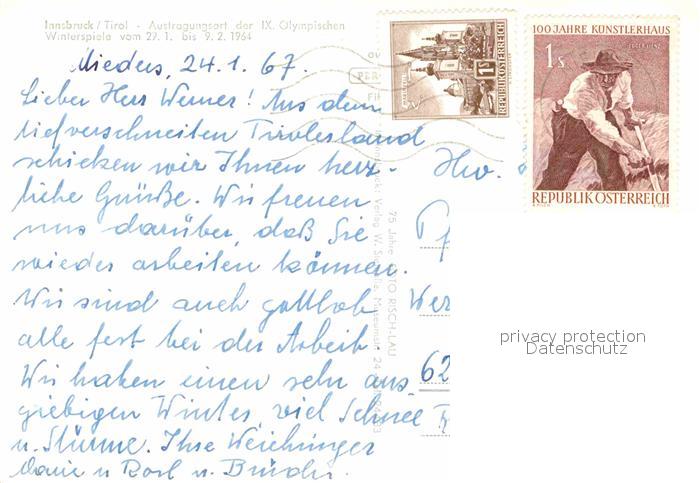 Innsbruck / Tirol - Austragungsort der IX. Olympischen
Winterspiele vom 29. 1. bis 9. 2. 1964
Mieders, 24.1.67.
Lieber Herr Werner! Aus dem
tiefverschneiten Tirolerland
schicken wir Ihnen herz-
liche Grüße. Wir freuen
uns darüber, daß Sie
wieder arbeiten können.
Wir sind auch gottlob
alle fest bei der Arbeit
Wir haben einen sehr aus
giebigen Winter, viel Schnee
u. Stürme. Ihre
u u. Brüder.
1 S
REPUBLIK ÖSTERREICH
100 JAHRE KÜNSTLERHAUS
1 S
REPUBLIK ÖSTERREICH
75 Jahre RISCH-LAU
Hw.
Pf
Wer
62
privacy protection
Datenschutz